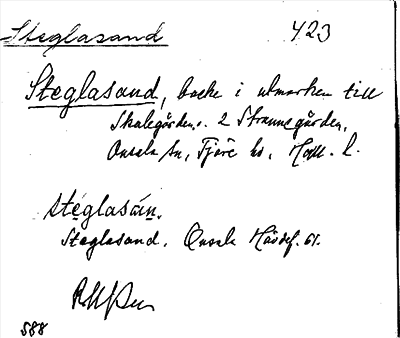 Steglasand 423
Steglasand, backe i utmarken till
Skalegården o. 2 Strannegården,
Onsala sn, Fjäre hd, Hall. l.
stéglasán.
Steglasand. Onsala Häsdef. 61.
588